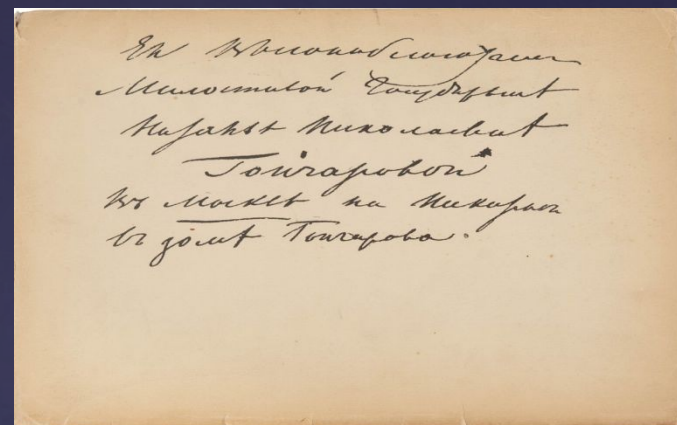 Ея Высокоблагородию
Милостивой Государынѣ
Натальѣ Николаевнѣ
Гончаровой
Въ Москвѣ на Никитской
въ домѣ Гончарова.